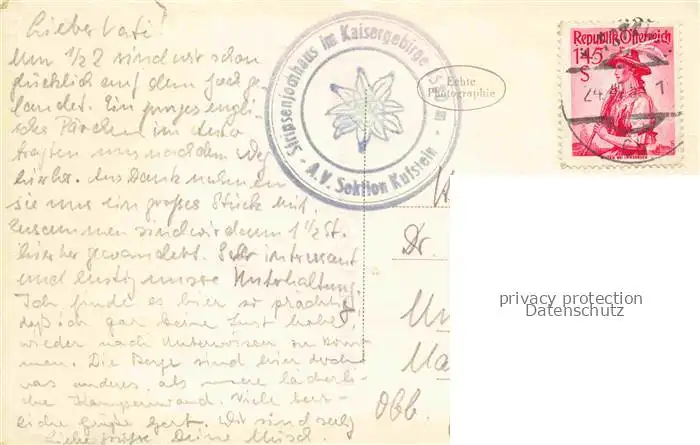 Lieber Vati!
Um ½ 2 sind wir schon
glücklich auf dem Joch ge-
landet. Ein junges engli-
sches Pärchen im Auto
fragten uns nach dem Weg
hierher. Aus Dank nahmen
sie uns ein großes Stück mit.
Zusammen sind wir dann 1½ St.
hierher gewandert. Sehr interessant
und lustig unsere Unterhaltung.
Ich finde es hier so prächtig
daß ich gar keine Lust habe,
wieder nach Unterwössen zu kom-
men. Die Berge sind hier doch
was anderes, als unsere lächerli-
che Kampenwand. Viele herz-
liche Grüße Gert. Wir sind selig
Liebe Grüße Deine
Stripsenjochhaus im Kaisergebirge
A.V. Sektion Kufstein
Echte
Photographie
Republik Österreich
1.45
S
24.
Dr.
Obb.
privacy protection
Datenschutz